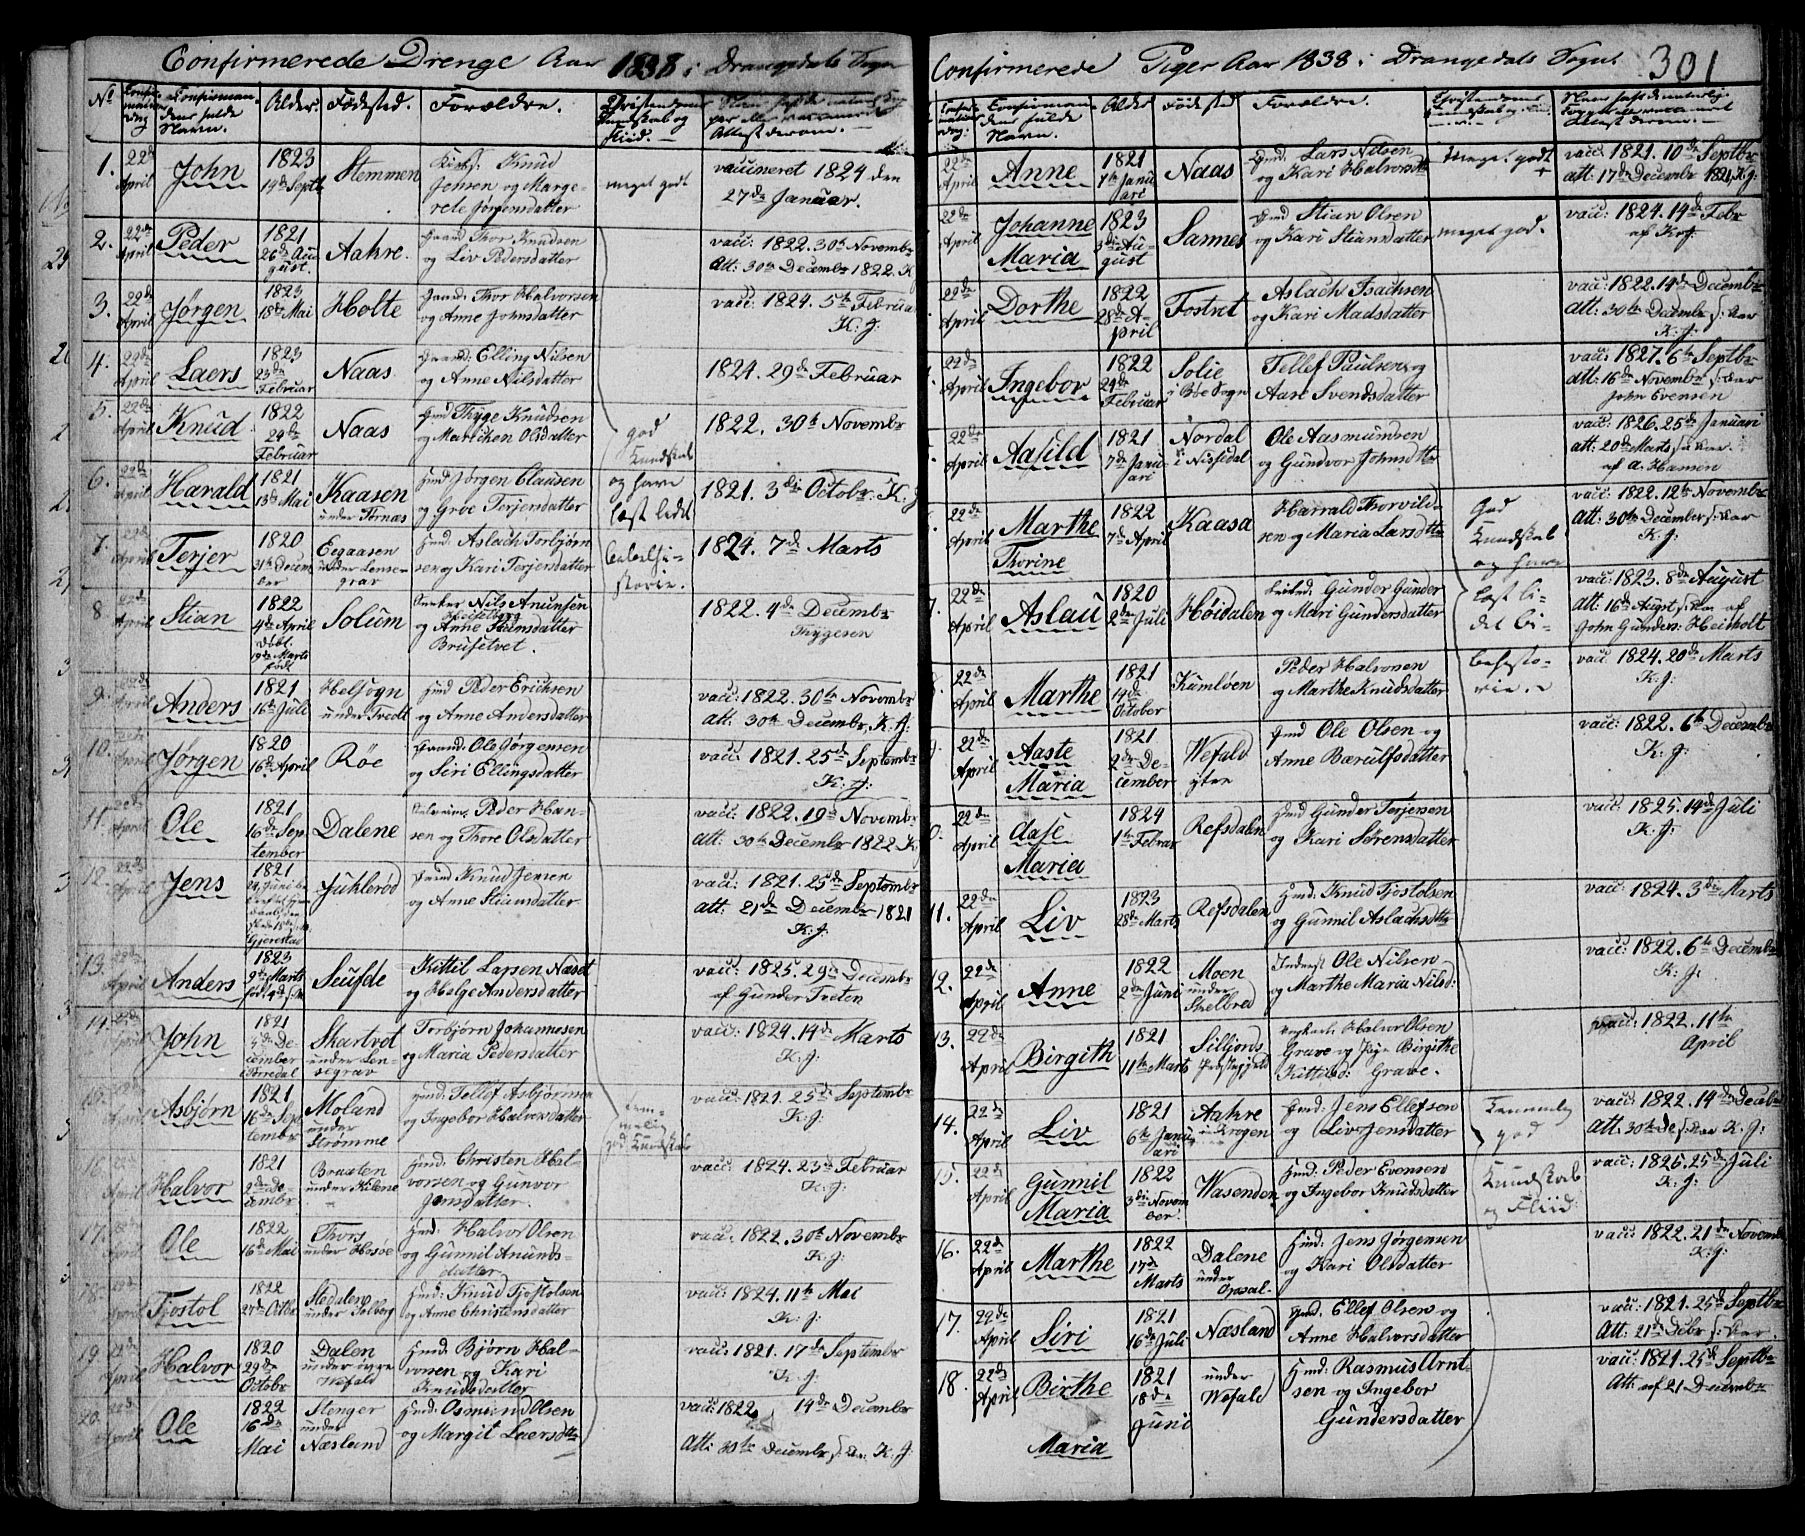 Confirmerede Drenge Aar 1838 i Drangedals Sogn
No
Alder. Fødested. Forældre.
1. 22de April John 1823 19de Septb Stemmen Knud Johnsen og Margrete Jørgensdatter meget godt vaccineret 1824 den 27de Januar.
2. 22de April Peder 1821 26de August. Aakre. Gaard Thor Knudsen og Liv Pedersdatter vacc: 1822. 30te Novembr Att: 30te Decembr 1822. K
3. 22de April Jørgen 1823 18de Mai Holte Gaard Thor Halvorsen og Anne Johnsdatter vacc: 1824. 5te Februar K: J:
4. 22de April Laers 1823 23de Februar Naas Gaard: Elling Nilsen og Anne Nilsdatter 1824. 29de Februar
5. 22de April Knud 1822 24de Februar Naas Hmd Thyge Knudsen og Marichen Olsdatter god Kundskab 1822. 30te Novembr
6. 22de April Harald 1821 13de Mai Kaasen under Tørnæs Hmd Jørgen Clausen og Groe Terjersdatter og have læst 1821. 3die Octobr. K: J
7. 22de April Terjer 1820 31te December Eegaasen under Lensegrav Hmd: Aslach Torbjørnsen og Kari Terjersdatter bibelhistorie. 1824. 7de Marts
8 22de April Stian 1822 4de April døbt 19de Marts født Solüm Nils Anunsen og Anne Stiansdatter Brusetvet. 1822. 4de Decembr Thygesen
9. 22de April Anders 1821 16de Juli Helsogn under Tvedt Hmd Peder Erichsen og Anne Andersdatter vacc: 1822. 30te Novembr Att: 30te Decembr, K. J:
10. 22de April Jørgen 1820 16de April Röe Gaard: Ole Jørgensen og Siri Ellingsdatter vacc: 1821. 25de Septembr K: J:
11. 22de April Ole 1821 16de September Dalene Peder Hansen og Thore Olsdatter vacc: 1822. 19de Novembr Att: 30te Decembr 1822 K
12. 22de April Jens 1821 Gjerestad Juhlerød Knud Jensen og Anne Stiansdatter vacc: 1821. 25de Septembr att: 21de Decembr 1821 K: J:
13. 22de April Anders 1823 9de Marts Seüfde Kittil Larsen Næset og Helge Andersdatter vacc: 1825. 29de Decembr af Gunder Treten
14. 22de April John 1821 December i Tørredal Skartvet under Lensegrav Torbjørn Johannesen og Maria Pedersdatter vacc: 1824. 14de Marts K: J:
15. 22de April Asbjørn 1821 16de September Moland under Strømme Hmd: Tellef Asbjørnsen og Ingebor Halvorsdatter temmelig god Kundskab vacc: 1821. 25de Septembr K: J:
16. 22de April Halvor 1821 2den Decembr Braaten under Kilene Hmd: Christen Halvorsen og Gunvor Jensdatter. vacc: 1824. 23de Februar K: J:
17. 22de April Ole 1822 16de Mai Thors under Hosøe Hmd: Halvor Olsen og Gunnil Anundsdatter. vacc: 1822. 30te Novembr K: J:
18. 22de April Tjostol 1822 27de Octbr Stedalen under Solberg Hmd: Knud Tjostolsen og Anne Christensdatter vacc: 1824. 11te Mai K: J:
19. 22de April Halvor 1820 29de Octobr Dalen under øvre Wefald Hmd: Bjørn Halvorsen og Kari Knudsdatter vacc: 1821. 17de Septembr K: J:
20. 22de April Ole 1822 16de Mai Stenger under Næsland Hmd: Osmund Olsen og Margit Laersdttr vacc 1822 14de Decembr Att: 30te Decembr K: J:
Confirmerede Piger Aar 1838 i Drangedals Sogn. 301
Alder Fødested Forældre.
22de April Anne 1821 7de Januari Naas Hmd: Lars Nilsen og Kari Halvorsdtt meget godt + vacc: 1821. 10de Septbr att: 17de Decembr 1821, K. J:
22de April Johanne Maria 1823 3die August Sannes Hmd Stian Olsen og Kari Stiansdatter meget god. vacc: 1824. 14de Febr af K: J:
22de April Dorthe 1822 28de April Fostvet Aslach Isachsen og Kari Madsdatter vacc: 1822. 14de Decembr Att: 30te Decembr K: J:
22de April Ingebor 1822 24de Februar Solie i Bøe Sogn Tellef Paulsen og Aase Svendsdatter vacc: 1827. 6te Septbr att: 16de Novembr John Evensen
22de April Aasild 1821 7de Januari Nordal i Nissedal Ole Aasmundsen og Gundvor Johnsdtr vacc: 1826. 25de Januari att: 20de Marts af A. Hansen
22de April Marthe Thorine 1822 7de April Kaasa Harrald Thorvildsen og Maria Larsdttr God Kundskab og have vacc: 1822. 12te Novembr Att: 30te Decembr K: J:
22de April Aslau 1820 2de Juli Høidalen Gunder Gundersen og Mari Gundersdatter læst bibelhistorie. vacc: 1823. 8de August Att: 16de August af John Gunders: Heiholt
22de April Marthe 1821 14de October Kumlven Peder Halvorsen og Marthe Knudsdatter vacc: 1824. 20de Marts K: J:
22de April Aaste Maria 1821 2de December Wefald yter Hmd Ole Olsen og Anne Bærulfsdatter vacc: 1822. 6te Decembr K: J:
22de April Aase Maria 1824 1te Februar Refsdalen Hmd Gunder Terjersen og Kari Sørensdatter vacc: 1825. 14de Juli K: J:
11. 22de April Liv 1823 28de Marts Refsdalen Hmd: Knud Tjostolsen og Gunnil Aslachsdttr vacc: 1824. 3die Marts
12. 22de April Anne 1822 2de Juni Moen under Skelbred Inderst Ole Nilsen og Marthe Maria Nilsd: vacc: 1822. 6te Decembr K: J:
13. 22de April Birgith 1821 11te Marts Silljords Præstegjeld Halvor Olsen Grave og Birgithe Kittilsd: Grave. vacc: 1822. 11te April
14. 22de April Liv 1821 6te Januari Aakre Krogen Hmd: Jens Ellefsen og Liv Jensdatter Temmelig god vacc: 1822. 14de Decbr Att: 30te K. J:
15. 22de April Gunnil Maria 1822 3die November. Wasenden Hmd: Peder Evensen og Ingebor Knudsdatter Kundskab og Fliid. vacc: 1826. 25de Juli K: J:
16. 22de April Marthe 1822 17de Marts Dalene under Opsal Hmd: Jens Jørgensen og Kari Olsdatter vacc: 1822. 21de Novemb K: J:
17. 22de April Siri 1821 16de Juli Næsland Hmd: Ellef Olsen og Anne Halvorsdatter vacc: 1821. 25de Septbr Att: 21de Debr
18. 22de April Birthe Maria 1821 18de Juni under Wefald Hmd: Rasmus Arntsen og Ingebor Gundersdatter vacc: 1821. 25de Septbr Att: af 21 Decembr